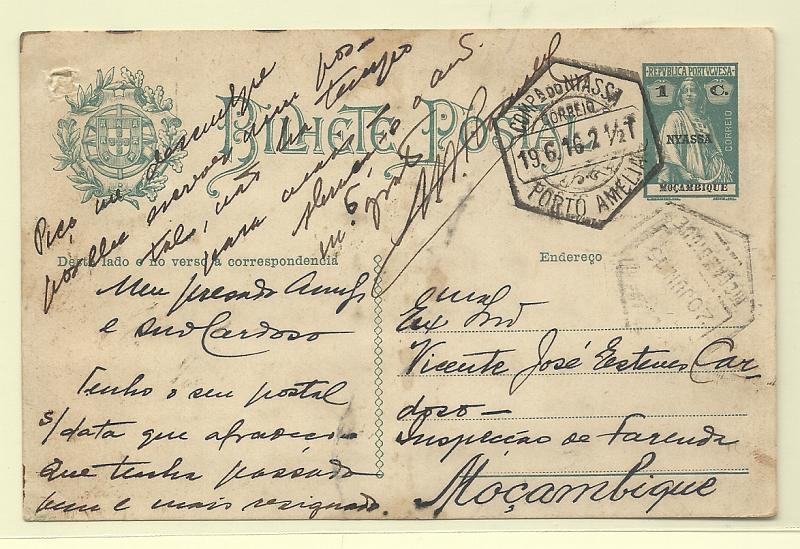 BILHETE POSTAL
REPUBLICA PORTUGUESA
1 C.
CORREIO
NYASSA
MOÇAMBIQUE
COMPA DO NYASSA
CORREIO
19.6.16.2 ½T
PORTO AMELIA
MOÇAMBIQUE
20 JUN
Peço me desculpe
por lhe escrever num pos-
tal, não ha tempo
para mais
m.
Desta lado e no verso a correspondencia
Endereço
Meu presado Amigo
e Snr Cardoso
Tenho o seu postal
s/data que agradeço.
Que tenha passado
bem e mais resignado.
Exmo Snr
Vicente José Esteves Car-
doso —
Inspecção de Fazenda
Moçambique